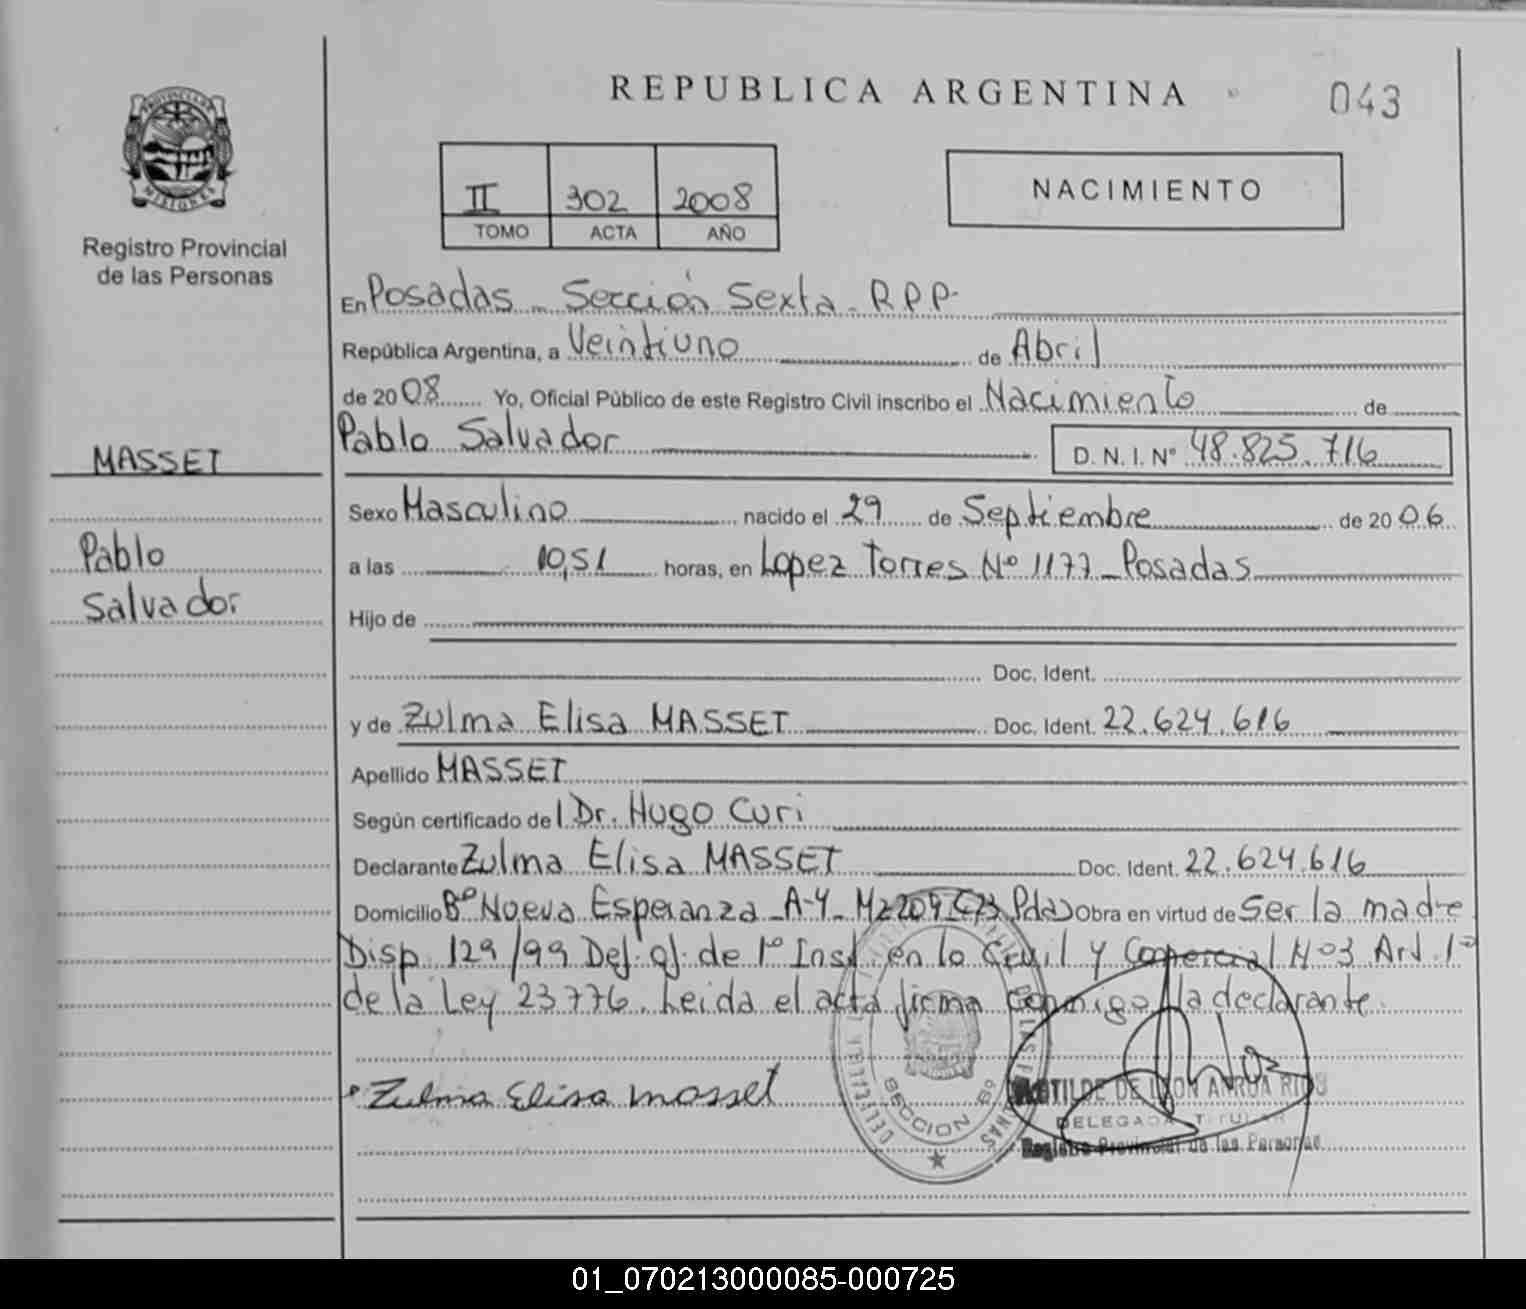 REPUBLICA ARGENTINA
043
PROVINCIA DE
MISIONES
Registro Provincial
de las Personas
II 302 2008
TOMO ACTA AÑO
NACIMIENTO
En Posadas - Sección Sexta - R.P.P.
República Argentina, a Veintiuno de Abril
de 2008 Yo, Oficial Público de este Registro Civil inscribo el Nacimiento de
Pablo Salvador D.N.I. Nº 48.825.716
MASSET
Pablo
Salvador
Sexo Masculino nacido el 29 de Septiembre de 2006
a las 10,51 horas, en Lopez Torres Nº 1177 - Posadas
Hijo de
Doc. Ident.
y de Zulma Elisa MASSET Doc. Ident. 22.624.616
Apellido MASSET
Según certificado del Dr. Hugo Curi
Declarante Zulma Elisa MASSET Doc. Ident. 22.624.616
Domicilio Bº Nueva Esperanza - A-4 - Mz 209 C73 Pdas Obra en virtud de Ser la madre
Disp. 129/99 Def. of. de 1º Inst. en lo Civil y Comercial Nº3 Art. 1º
de la Ley 23776. Leida el acta firma conmigo la declarante.
Zulma Elisa Masset
SECCION 6º
DELEGADA TITULAR
Registro Provincial de las Personas
01_070213000085-000725